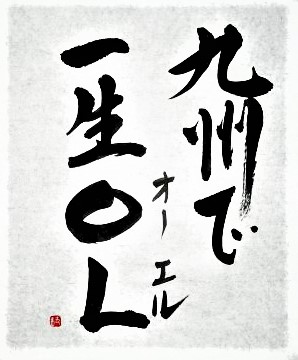 九州で
オーエル
一生OL